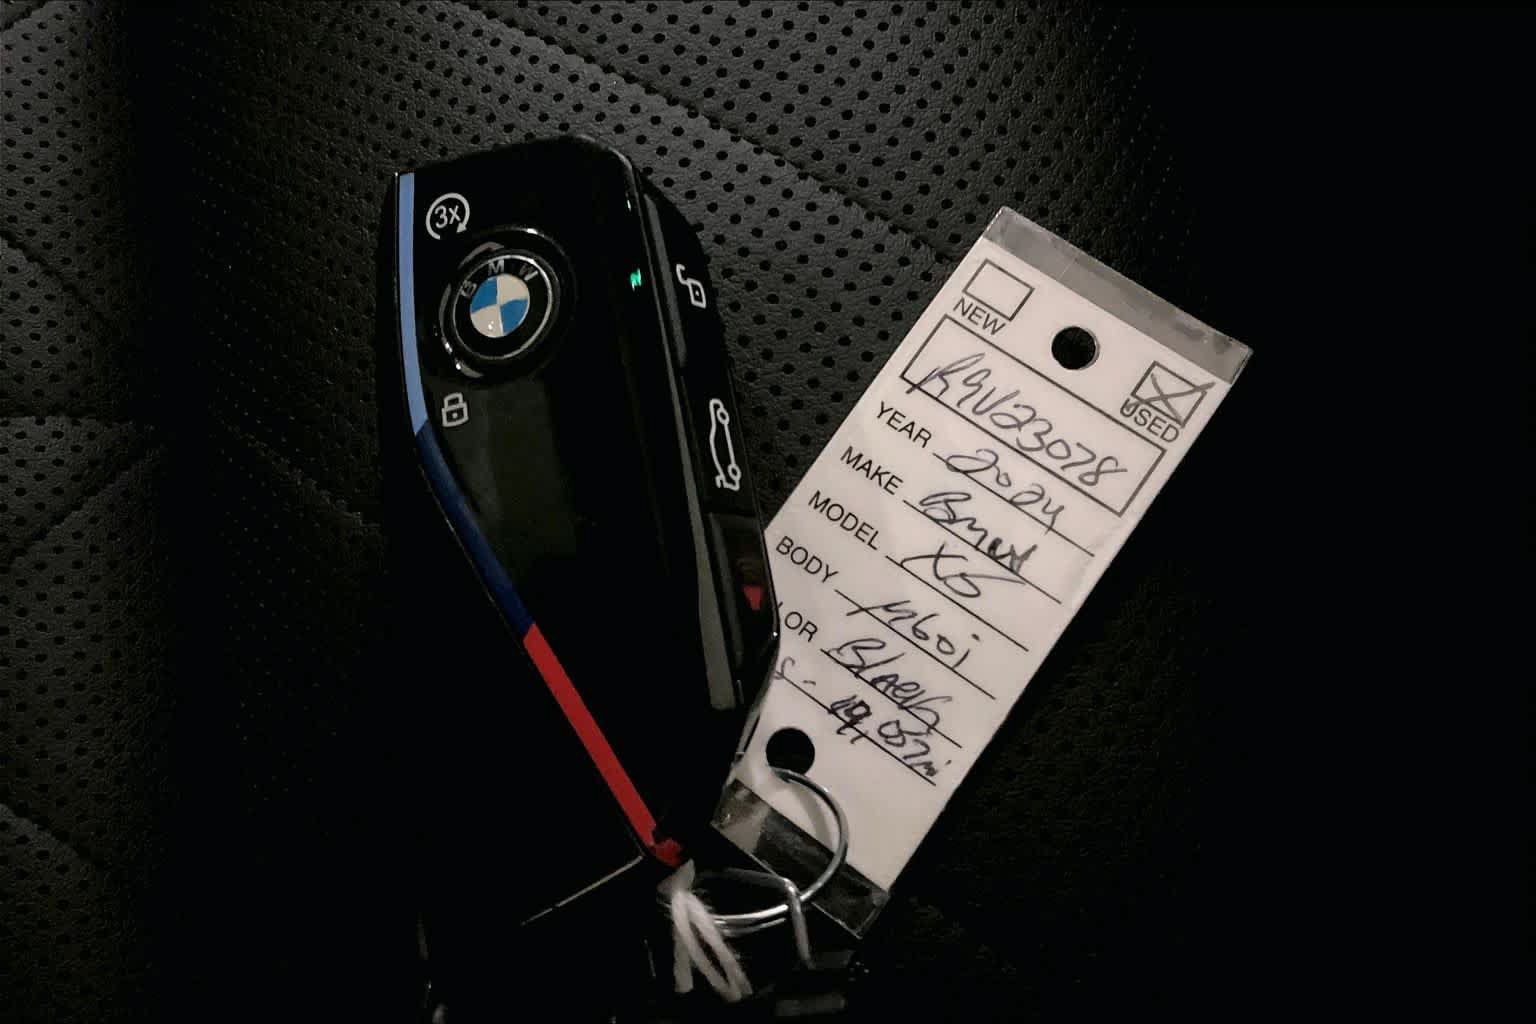 3x
BMW
NEW
USED
R9V23078
YEAR 2024
MAKE BMW
MODEL X6
BODY M60i
LOR Black
S. 19,087mi